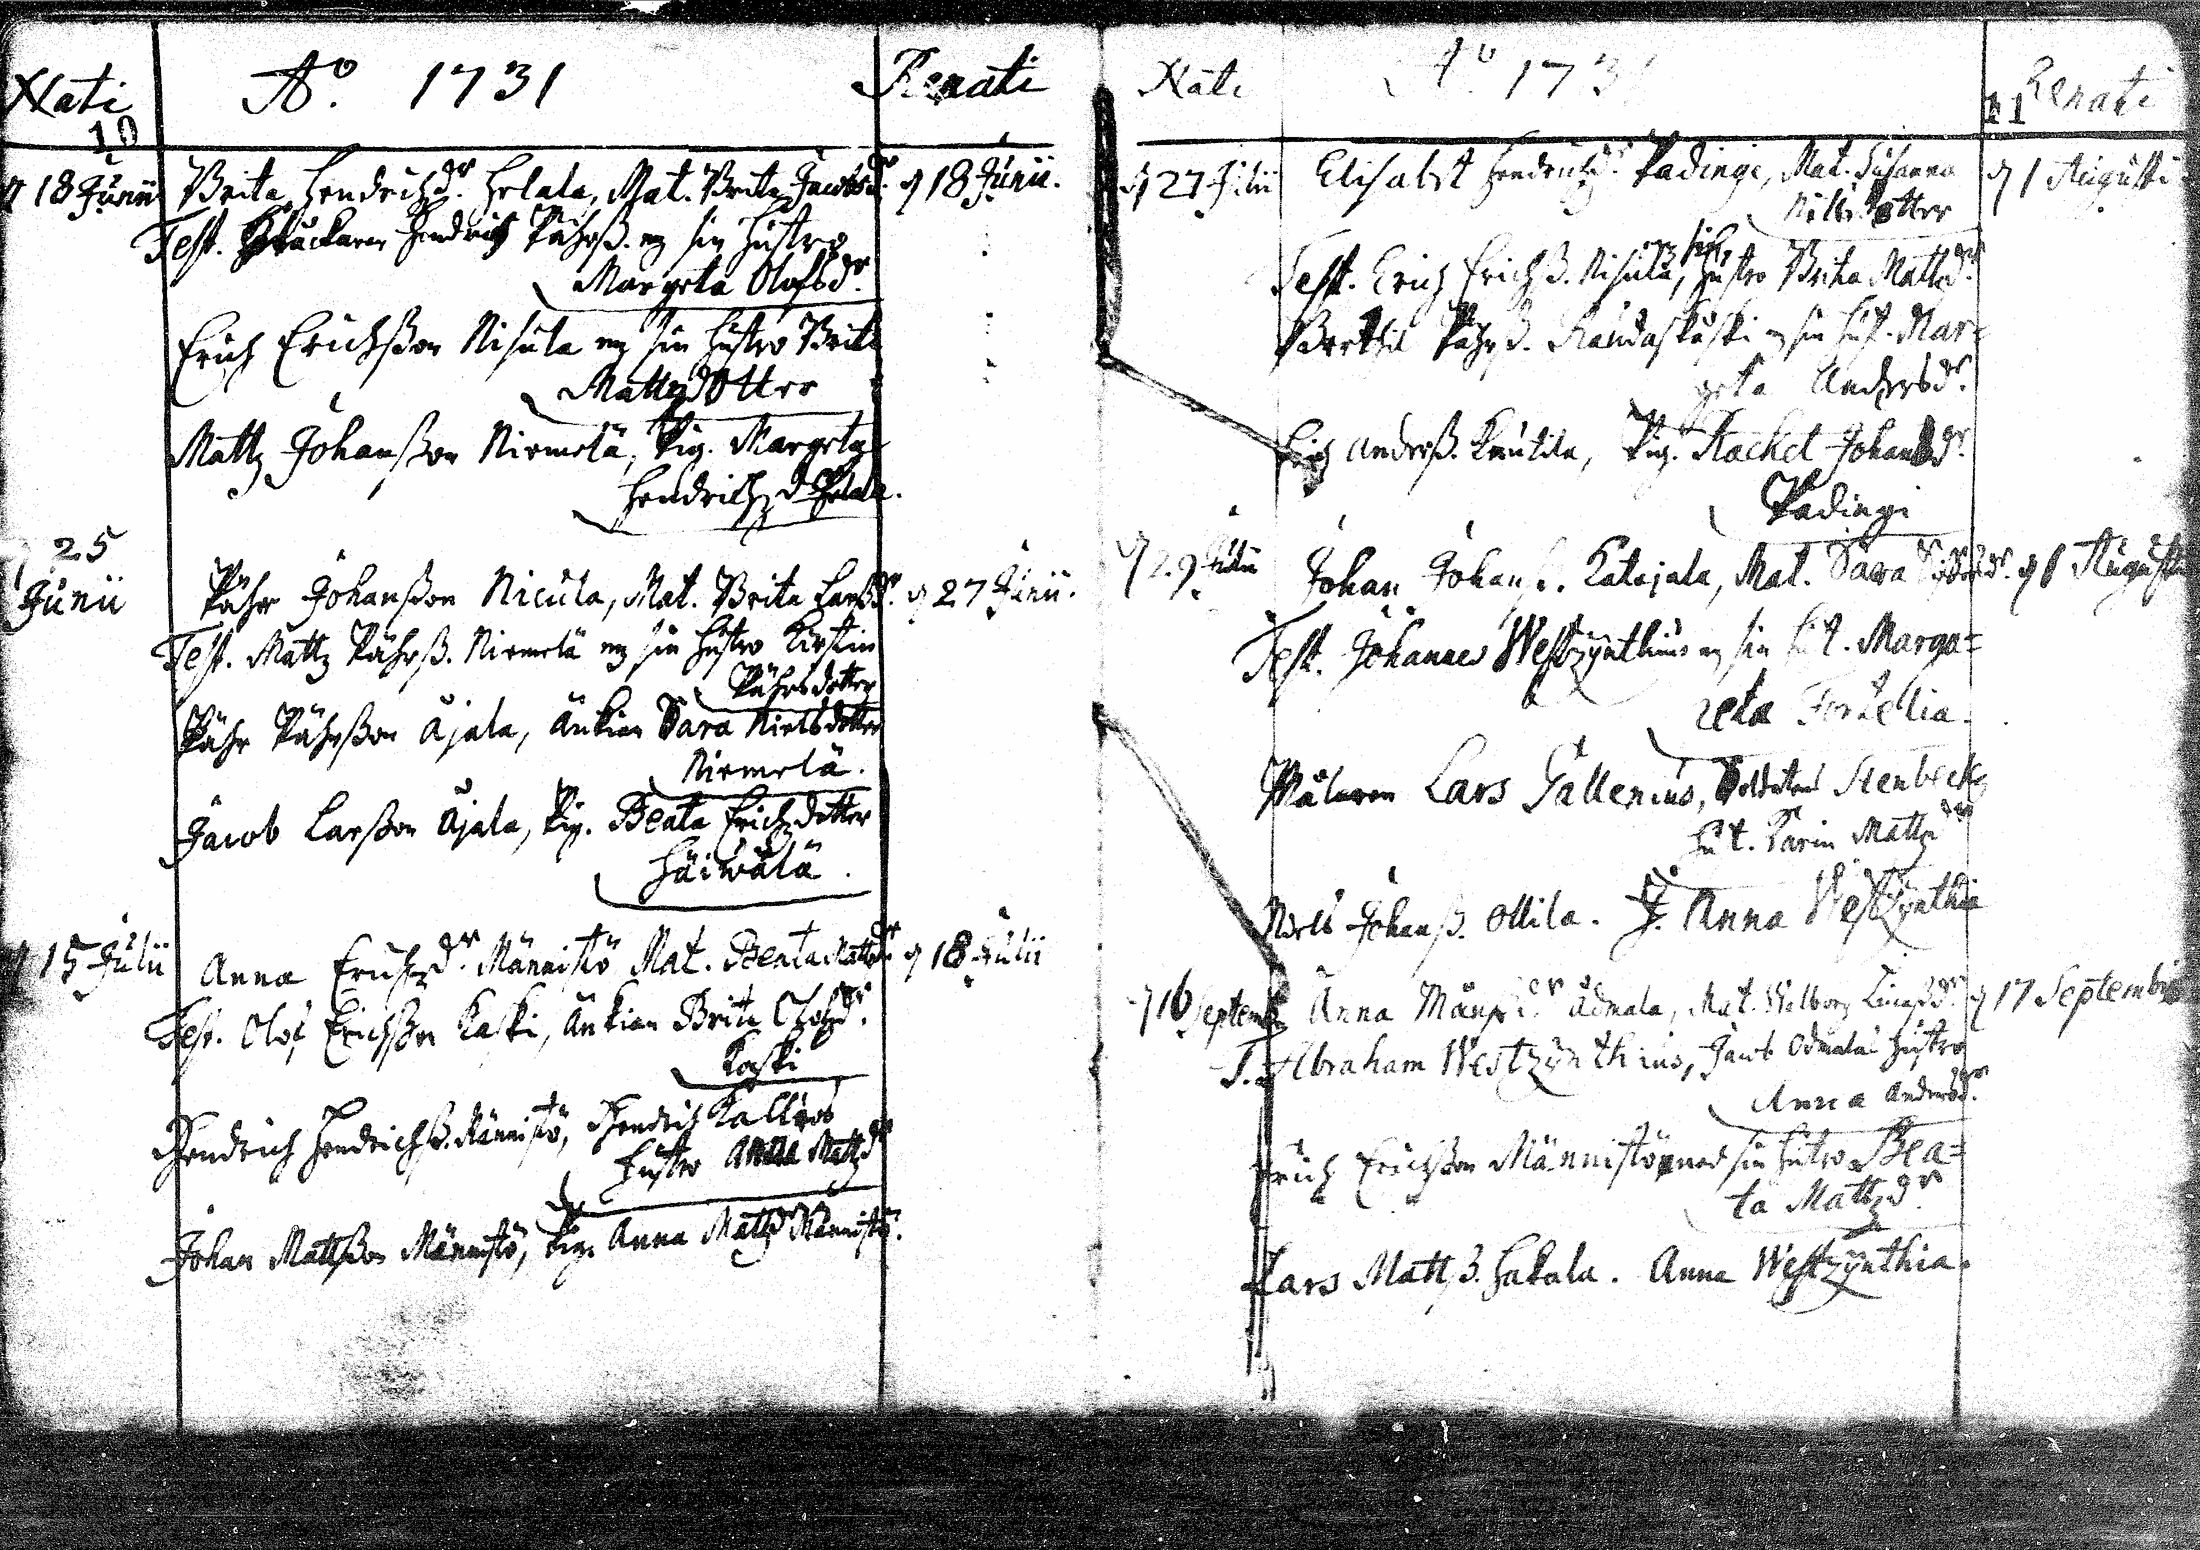 Nati
Ao. 1731
Renati
10
d 18 Junii Brita Hendrichzdr. Helala, Mat. Brita Jacobsdr. d 18 Junii.
Test. Hendrich Pährß. m sin Hustro
Margeta Olofsdr.
Erich Erichßon Nisula m sin Hustro Brita
Mattzdotter
Mattz Johanßon Niemelä, Pig. Margeta
Hendrichzd Helala.
d 25
Junii
Pähr Johanßon Nicula, Mat. Brita Larßdr. d 27 Junii.
Test. Mattz Pährß. Niemelä m sin Hustro Kirstin
Pährsdotter
Pähr Pährßon Äjala, Änkian Sara Nielsdotter
Niemelä.
Jacob Larßon Äjala, Pig. Beata Erichzdotter
Häiwälä.
d 15 Julii Anna Erichzdr. Männistö Mat. Beata Mattzdr d 18 Julii
Test. Olof Erichßon Kaski, Änkian Brita Olofzdr.
Kaski
Hendrich Hendrichß. Männistö, Hendrich Kallios
Hustro Anna Mattzdr
Johan Mattßon Männistö, Pig. Anna Mattzd Männistö.
Nati
Ao. 173
Renati
11
d 27 Julii Elisabet Hendrichzdr. Padingi, Mat. Susanna d 1 Augusti
Nilsdotter
Test. Erich Erichß. Nisula, m sin Hustro Brita Mattzdr.
Berthil Pährß. Kaudaskoski m sin Hust. Mar=
geta Andersdr.
Erich Andersß. Knutila, Pig. Rachel Johansdr.
Padingi
d 29 Julii Johan Johanß. Katajala, Mat. Sara d 1 Augusti
Test. Johannes Westzynthius m sin Hust. Marga=
reta Fortelia.
Målaren Lars Gallenius, Stenbeck
Hust. Karin Mattzdr
Niels Johanß. Ollila. J. Anna Westzynthia
d 16 Septemb Anna Månsdr. Ädmala, Mat. Walborg d 17 Septembris
T. Abraham Westzynthius, Jacob Ödmalas Hustro
Anna Andersdr.
Erich Erichßon Männistö med sin Hustro Bea=
ta Mattzdr.
Lars Mattß. Hakala. Anna Westzynthia.